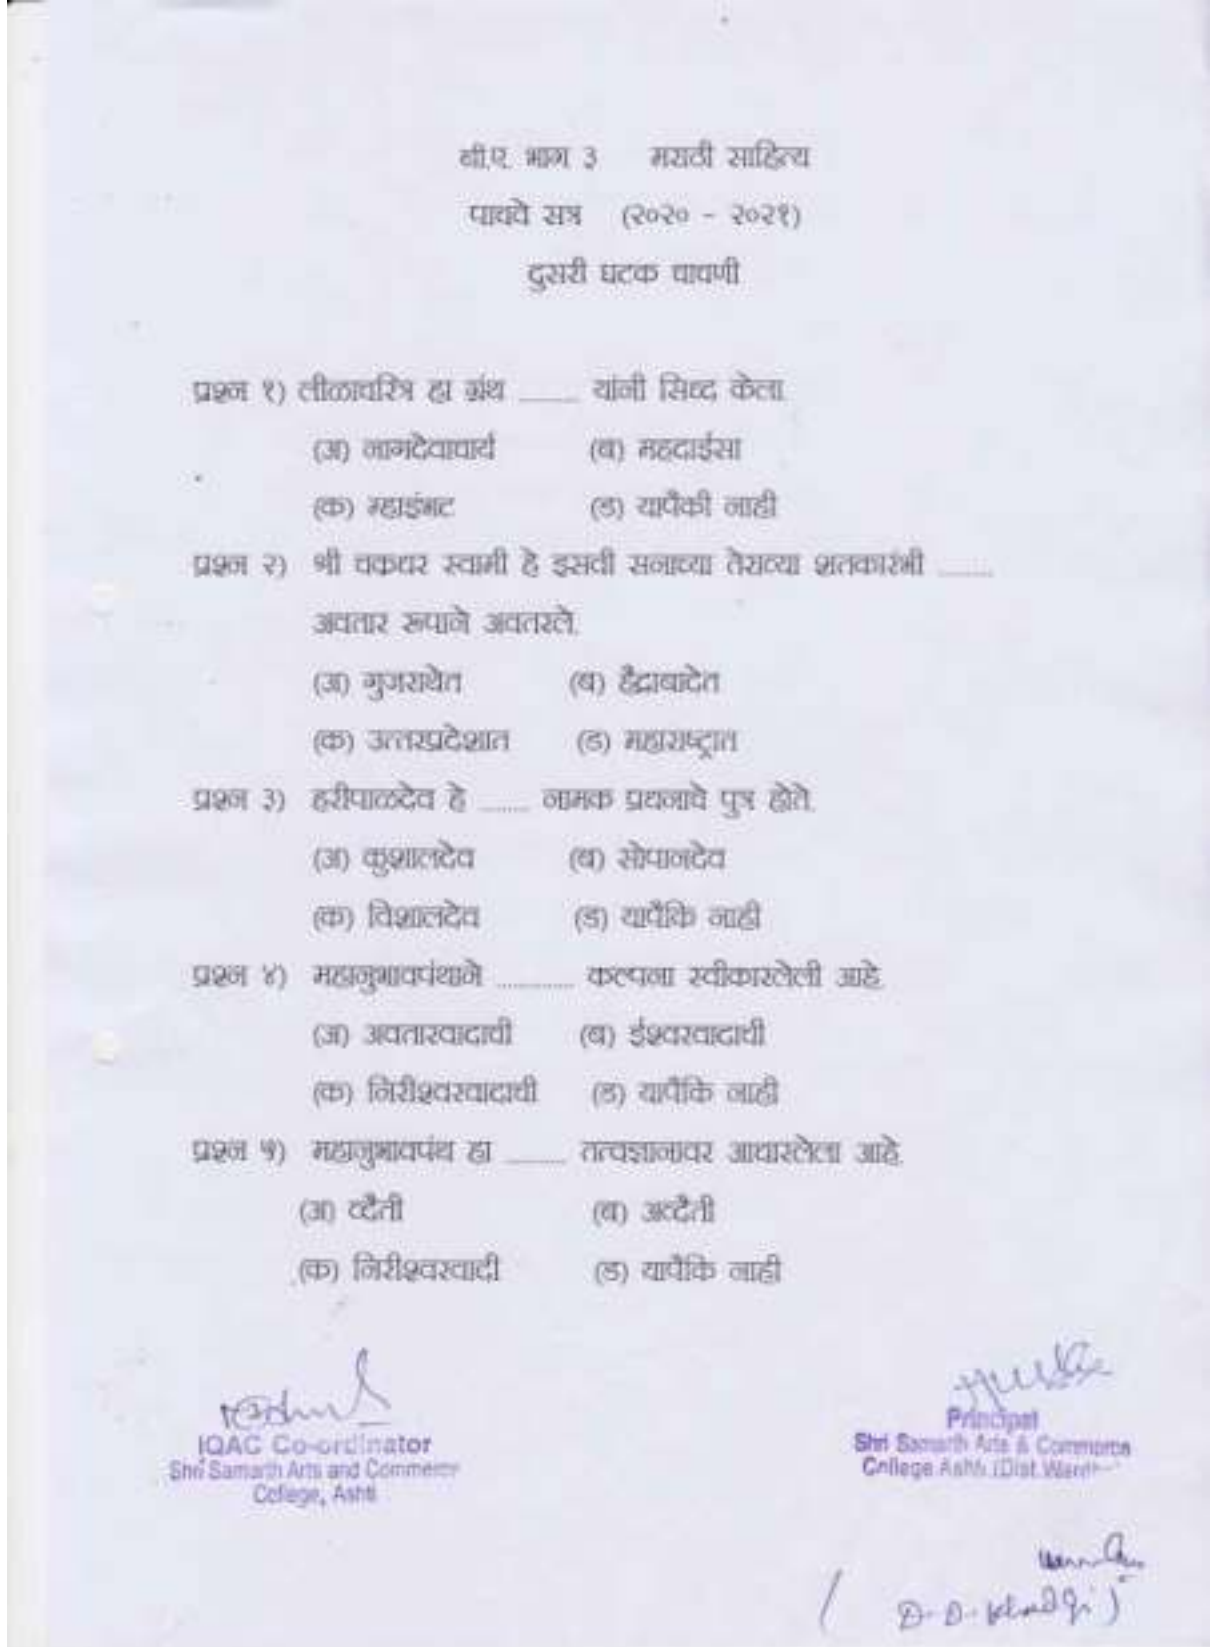 बी.ए. भाग ३ मराठी साहित्य
पाचवे सत्र (२०२० - २०२१)
दुसरी घटक चाचणी
प्रश्न १) लीळाचरित्र हा ग्रंथ ........ यांनी सिध्द केला.
(अ) नागदेवाचार्य (ब) महदाईसा
(क) म्हाइंभट (ड) यापैकी नाही
प्रश्न २) श्री चक्रधर स्वामी हे इसवी सनाच्या तेराव्या शतकारंभी ........
अवतार रूपाने अवतरले.
(अ) गुजराथेत (ब) हैद्राबादेत
(क) उत्तरप्रदेशात (ड) महाराष्ट्रात
प्रश्न ३) हरीपाळदेव हे ....... नामक प्रधनाचे पुत्र होते.
(अ) कुशालदेव (ब) सोपानदेव
(क) विशालदेव (ड) यापैकि नाही
प्रश्न ४) महानुभावपंथाने ........... कल्पना स्वीकारलेली आहे.
(अ) अवतारवादाची (ब) ईश्वरवादाची
(क) निरीश्वरवादाची (ड) यापैकि नाही
प्रश्न ५) महानुभावपंथ हा ........ तत्वज्ञानावर आधारलेला आहे.
(अ) व्दैती (ब) अव्दैती
(क) निरीश्वरवादी (ड) यापैकि नाही
IQAC Co-ordinator
Shri Samarth Arts and Commerce
College, Ashti
Principal
Shri Samarth Arts & Commerce
College Ashti (Dist.
D. D.